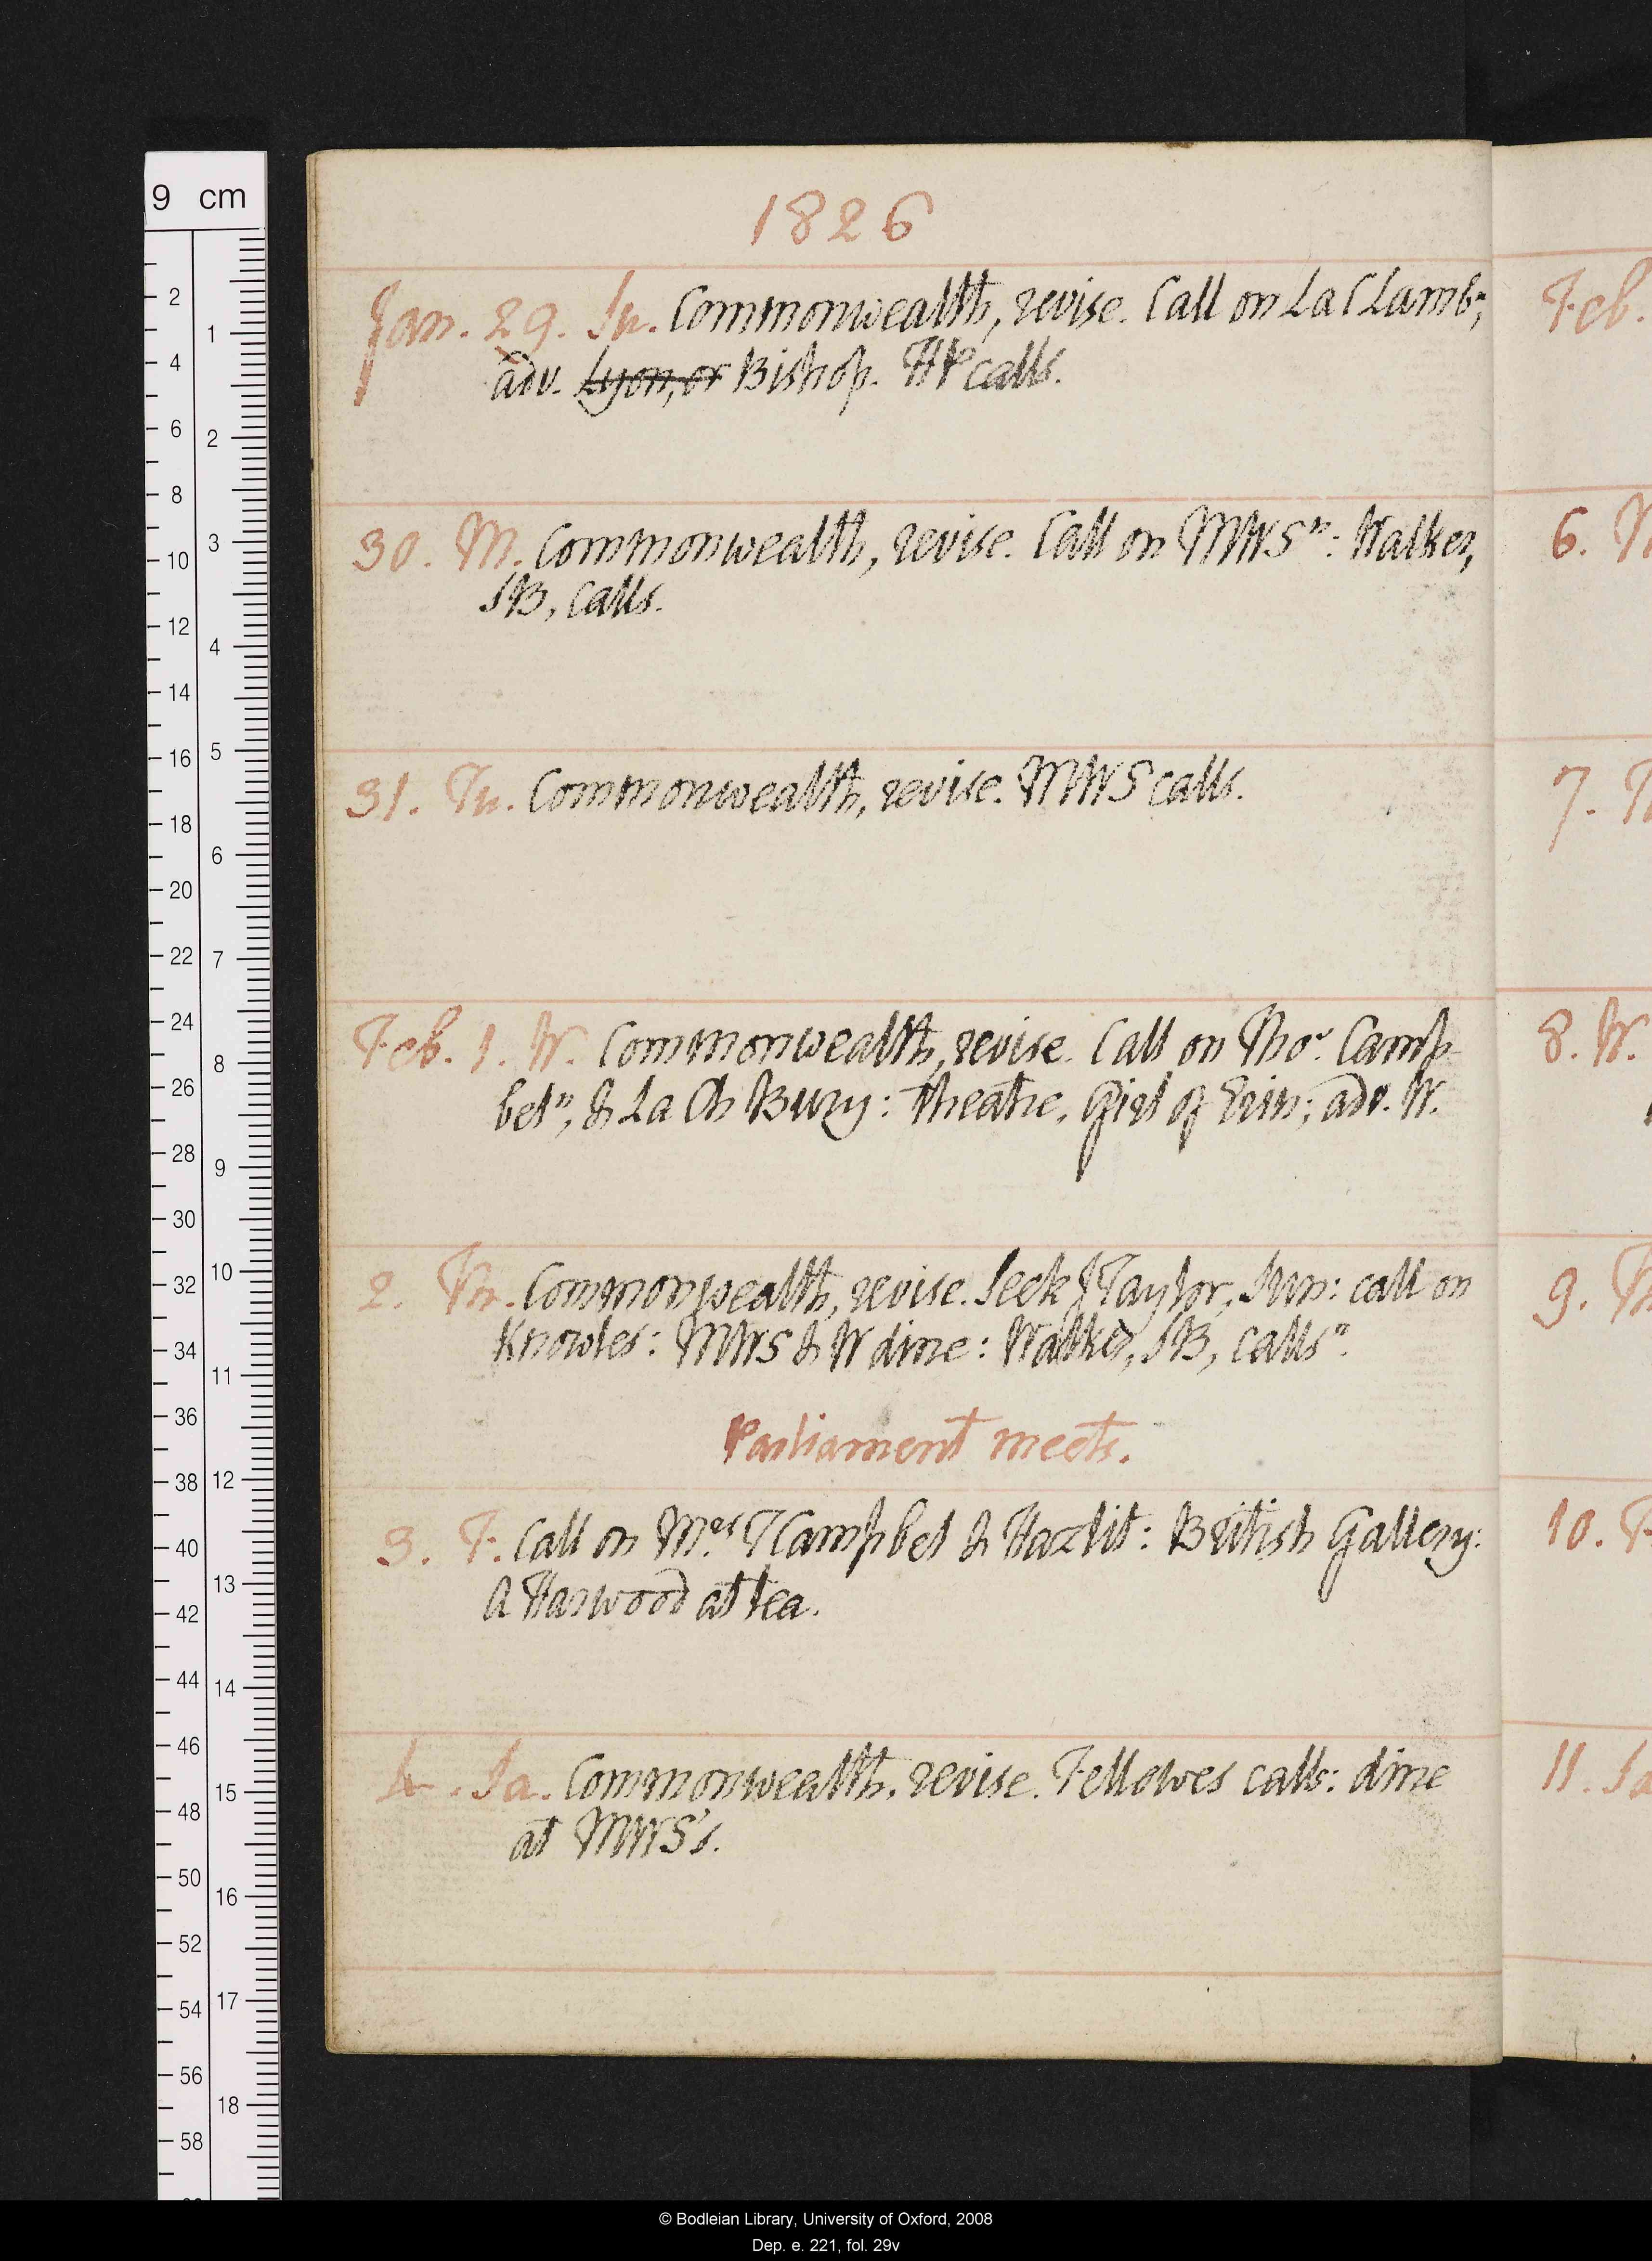 1826
Jan. 29. Su. Commonwealth, revise. Call on La C Lamb n;
adv. Lyon, or Bishop. HP calls.
30. M. Commonwealth, revise. Call on MWS n: Walker,
SB, calls.
31. Tu. Commonwealth, revise. MWS calls.
Feb. 1. W. Commonwealth, revise. Call on Thos. Camp-
bel n, & La Ch Bury: theatre, Girl of Erin; adv. W.
2. Th. Commonwealth, revise. Seek J Taylor, Sun: call on
Knowles: MWS & W dine: Walker, SB, calls n.
Parliament meets.
3. F. Call on Mrs T Campbel & Hazlit: British Gallery:
A Harwood at tea.
4. Sa. Commonwealth, revise. Fellowes calls: dine
at MWS's.
Feb.
6. M
7. T
8. W.
9. Th
10. F
11. Sa
9 cm
2 4 6 8 10 12 14 16 18 20 22 24 26 28 30 32 34 36 38 40 42 44 46 48 50 52 54 56 58
1 2 3 4 5 6 7 8 9 10 11 12 13 14 15 16 17 18
© Bodleian Library, University of Oxford, 2008
Dep. e. 221, fol. 29v